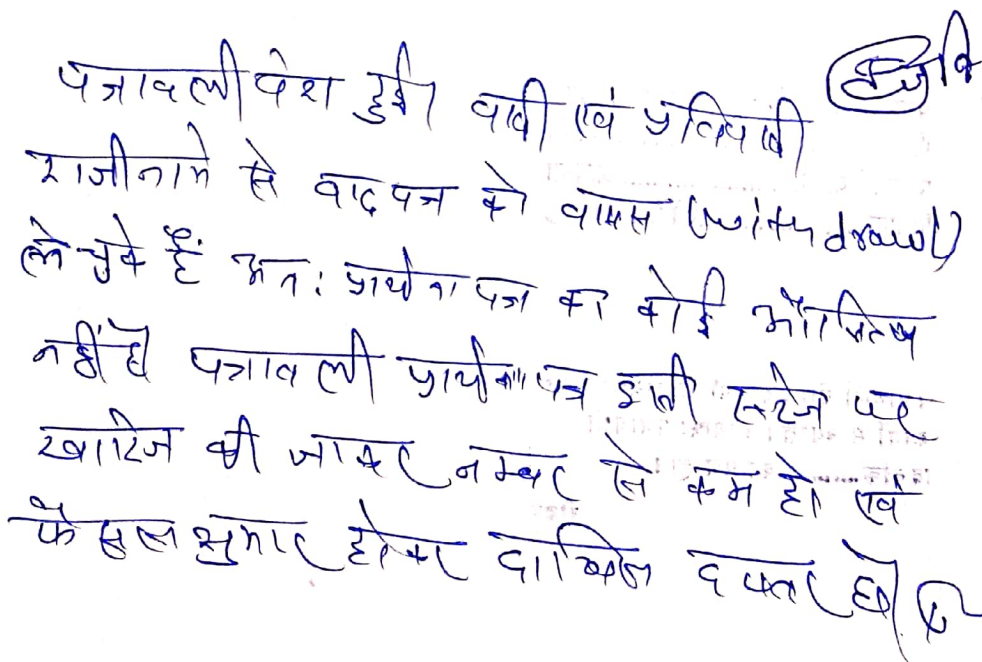 पत्रावली पेश हुई। वादी एवं प्रतिवादी
राजीनामे से वादपत्र को वापस (withdrawl)
ले चुके हैं अत: प्रार्थना पत्र का कोई औचित्य
नहीं है पत्रावली प्रार्थना पत्र इसी स्टेज पर
खारिज की जाकर नम्बर से कम हो। एवं
फैसल सुमार होकर दाखिल दफ्तर हो।